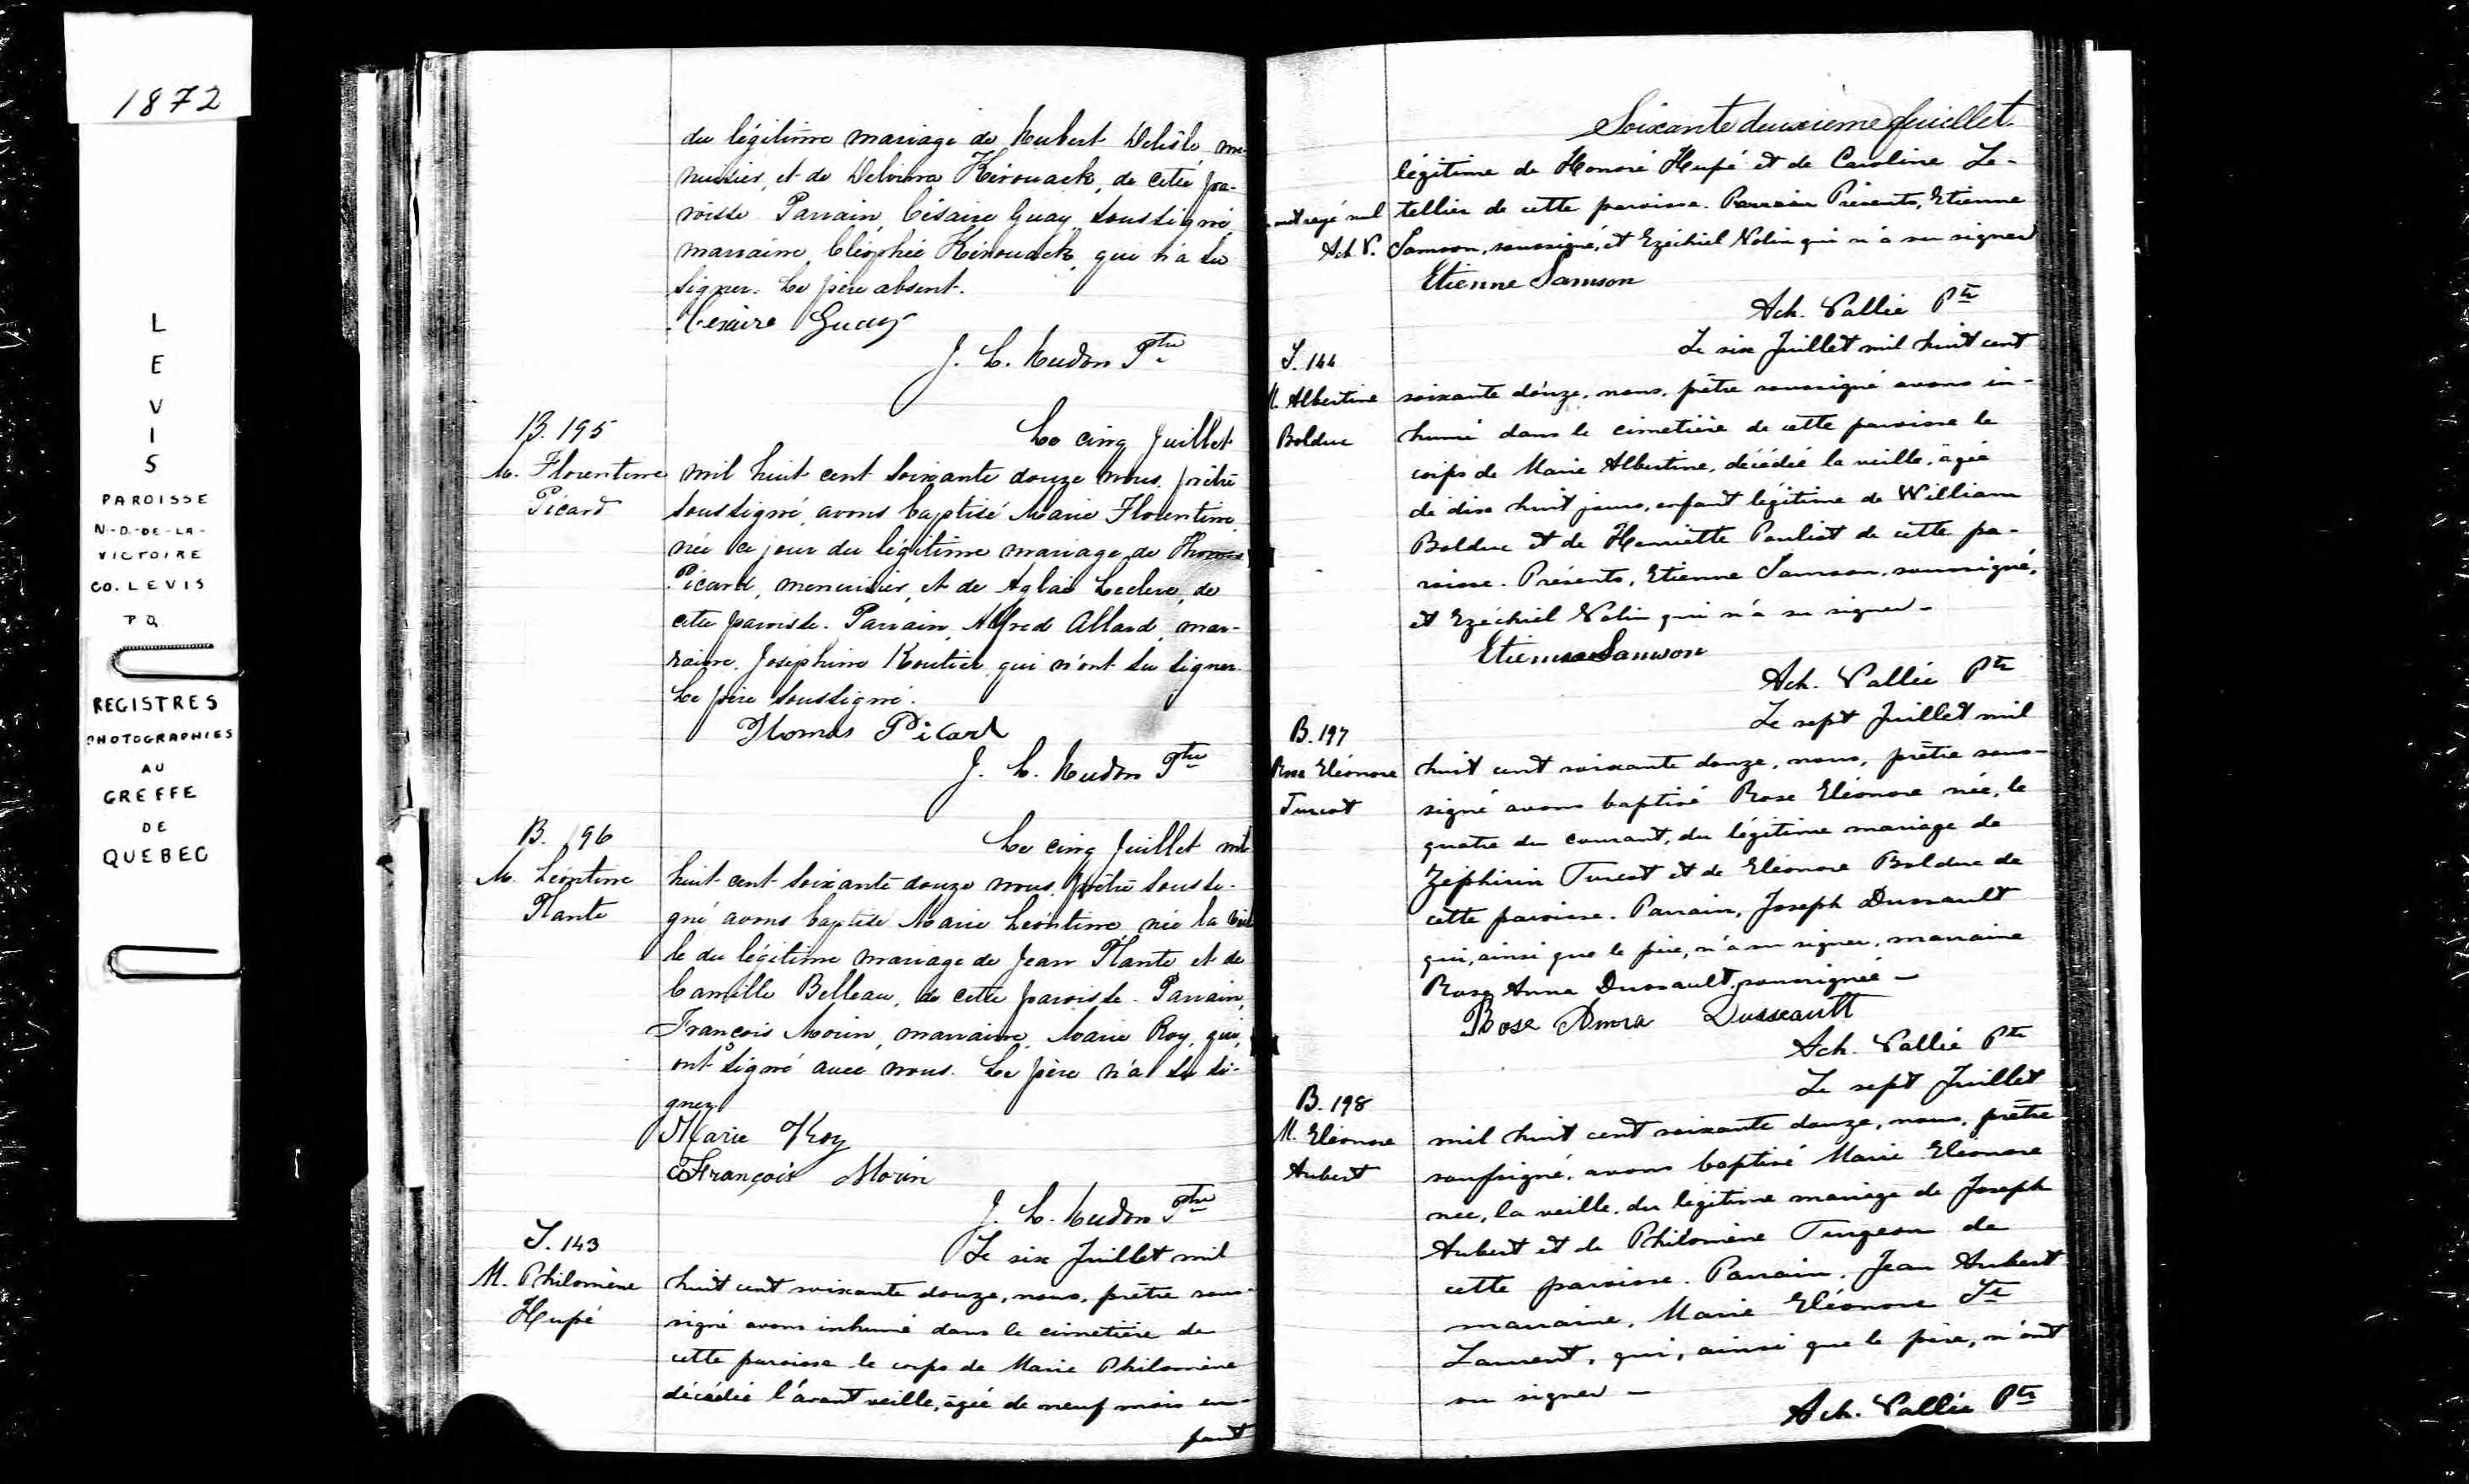 1872
L
E
V
I
S
PAROISSE
N-D-DE-LA-
VICTOIRE
CO. LEVIS
PQ
REGISTRES
PHOTOGRAPHIES
AU
GREFFE
DE
QUEBEC
du légitime mariage de Hubert Delisle me-
nuisier, et de Delvina Kérouack, de cette pa-
roisse. Parrain, Césaire Guay soussigné,
marraine, Cléophée Kérouack, qui n'a su
signer. Le père absent.
Cesaire Guay
J. C. Hudon Ptre
B. 195
M. Florentine
Picard
Le cinq Juillet
mil huit cent soixante douze nous, prêtre
soussigné, avons baptisé Marie Florentine,
née ce jour du légitime mariage de Thomas
Picard, menuisier, et de Aglaé Leclerc, de
cette paroisse. Parrain, Alfred Allard, mar-
raine, Joséphine Routier qui n'ont su signer.
Le père soussigné.
Thomas Picard
J. C. Hudon Ptre
B. 196
M. Léontine
Plante
Le cinq Juillet mil
huit cent soixante douze nous, prêtre soussi-
gné avons baptisé Marie Léontine née la veil-
le du légitime mariage de Jean Plante et de
Camille Belleau, de cette paroisse. Parrain,
François Morin, marraine, Marie Roy, qui,
ont signé avec nous. Le père n'a su si-
gner.
Marie Roy
François Morin
J. C. Hudon Ptre
S. 143
M. Philomène
Hupé
Le six Juillet mil
huit cent soixante douze, nous, prêtre sous-
signé avons inhumé dans le cimetière de
cette paroisse le corps de Marie Philomène
décédée l'avant veille, âgée de neuf mois en-
fant
Soixante deuxième feuillet.
légitime de Honoré Hupé et de Caroline Le-
mot rayé nul
tellier de cette paroisse. Parrain Présents, Etienne
Ach. V.
Samson, soussigné, et Ezéchiel Nolin qui n'a su signer
Etienne Samson
Ach. Vallée Ptre
S. 144
M. Albertine
Bolduc
Le six Juillet mil huit cent
soixante douze, nous, prêtre soussigné avons in-
humé dans le cimetière de cette paroisse le
corps de Marie Albertine, décédée la veille, âgée
de dix huit jours, enfant légitime de William
Bolduc et de Henriette Pouliot de cette pa-
roisse. Présents, Etienne Samson, soussigné,
et Ezéchiel Nolin qui n'a su signer -
Etienne Samson
Ach. Vallée Ptre
B. 197
Rose Eléonore
Turcot
Le sept Juillet mil
huit cent soixante douze, nous, prêtre sous-
signé avons baptisé Rose Eléonore née, le
quatre du courant, du légitime mariage de
Zéphirin Turcot et de Eléonore Bolduc de
cette paroisse. Parrain, Joseph Dussault
qui, ainsi que le père, n'a su signer, marraine
Rose Anna Dussault, soussignée -
Rose Anna Dusseault
Ach. Vallée Ptre
B. 198
M. Eléonore
Aubert
Le sept Juillet
mil huit cent soixante douze, nous, prêtre
soussigné, avons baptisé Marie Eléonore
née, la veille, du légitime mariage de Joseph
Aubert et de Philomène Turgeon de
cette paroisse. Parrain, Jean Aubert
marraine, Marie Eléonore St
Laurent, qui, ainsi que le père, n'ont
su signer -
Ach. Vallée Ptre